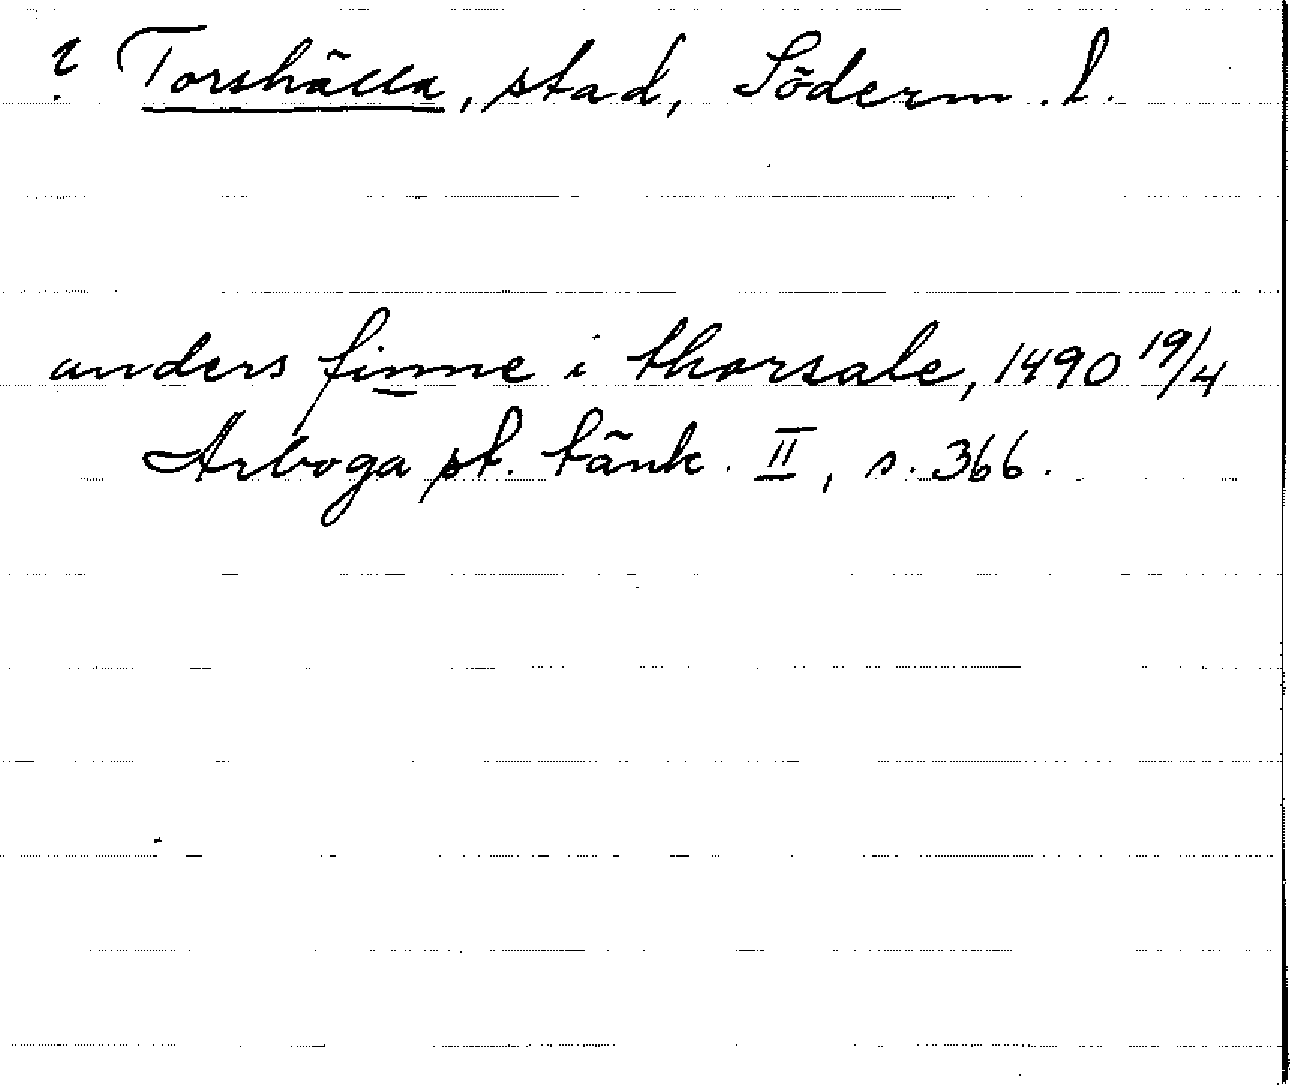 ? Torshälla, stad, Söderm. l.
anders finne i thorsale, 1490 19/4
Arboga st. tänk. II, s. 366.